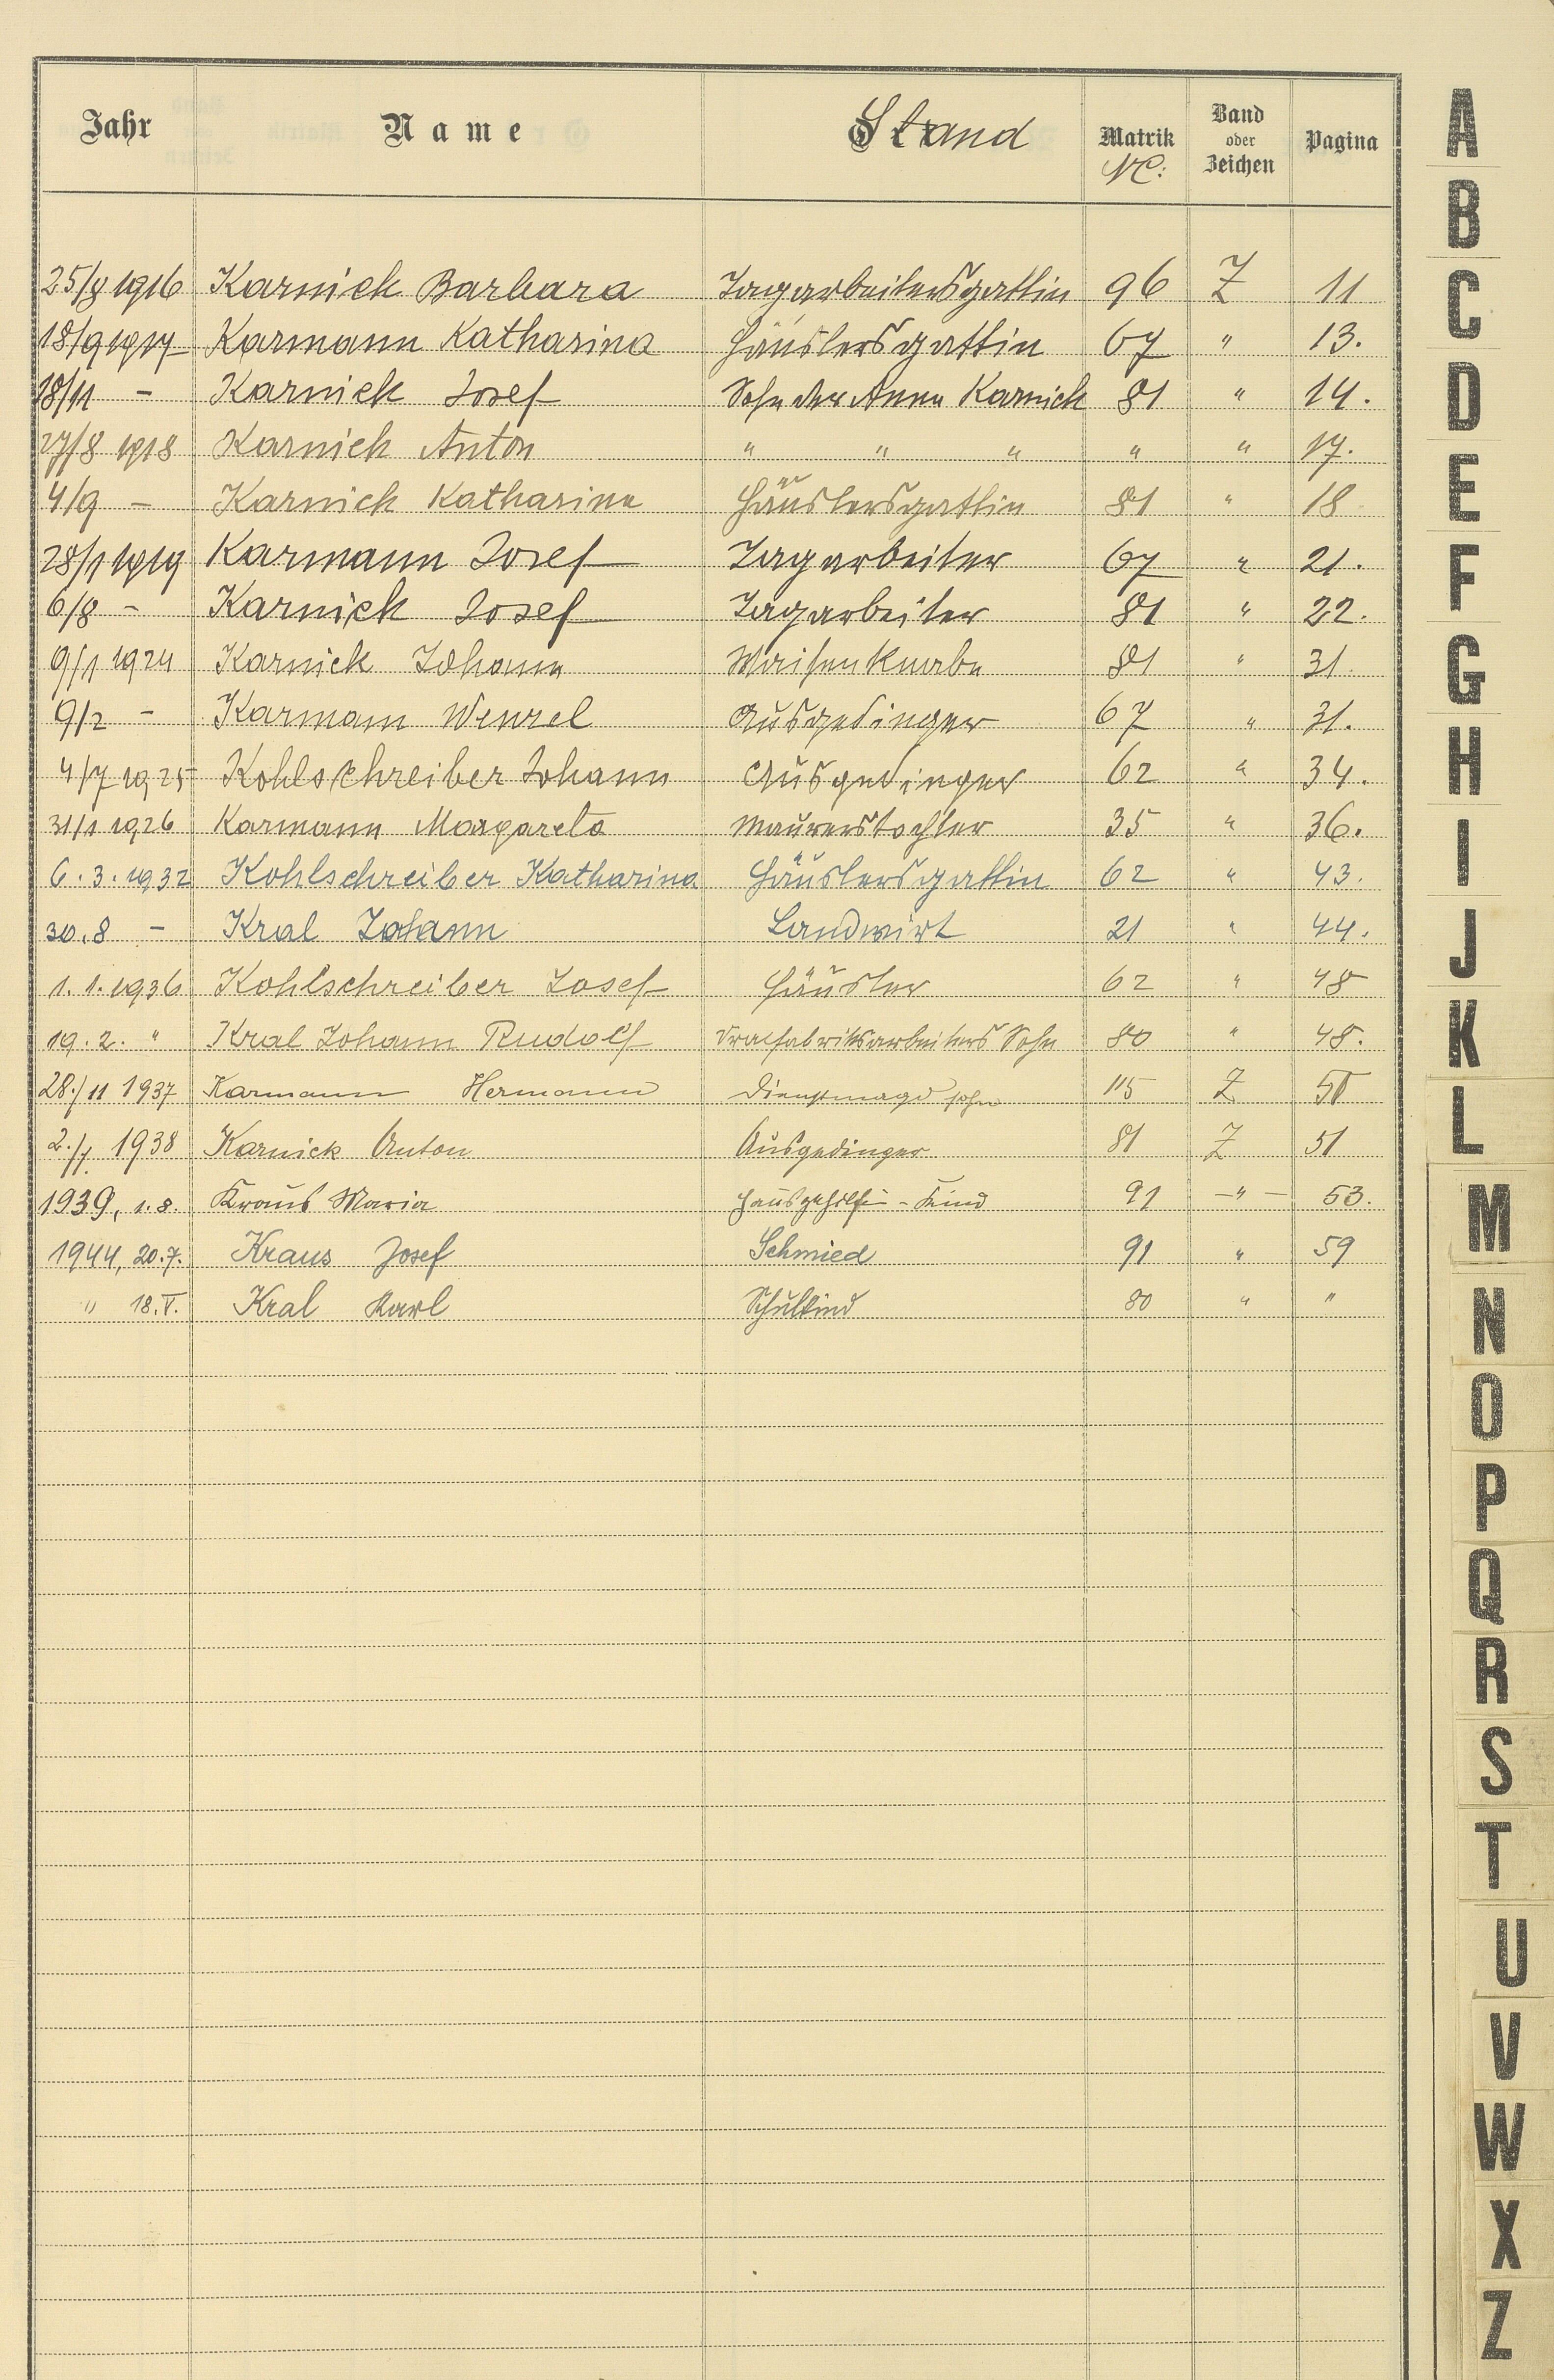 Jahr Name Stand Matrik NC: Band oder Zeichen Pagina
25/8 1916 Karnick Barbara Tagarbeitersgattin 96 Z 11
18/9 1917 Karmann Katharina Häuslersgattin 67 " 13.
18/11 - Karnick Josef Sohn der Anna Karnick 81 " 14.
27/8 1918 Karnick Anton " " " " " 17.
4/9 - Karnick Katharina Häuslersgattin 81 " 18
28/1 1919 Karmann Josef Tagarbeiter 67 " 21.
6/8 - Karnick Josef Tagarbeiter 81 " 22.
9/1 1924 Karnick Johann Waisenknabe 81 " 31.
9/2 - Karmann Wenzel Ausgedinger 67 " 31.
4/7 1925 Kohlschreiber Johann Ausgedinger 62 " 34.
31/1 1926 Karmann Margareta Maurerstochter 35 " 36.
6.3.1932 Kohlschreiber Katharina Häuslersgattin 62 " 43.
30.8 - Kral Johann Landwirt 21 " 44.
1.1.1936 Kohlschreiber Josef Häusler 62 " 48
19.2. " Kral Johann Rudolf Sohn 80 " 48.
28./11 1937 Karmann Hermann Dienstmagd sohn 115 Z
2./1. 1938 Karnick Anton Ausgedinger 81 Z 51
1939, 1.8. Kraus Maria Hausgehilfin - Kind 91 -"- 53.
1944, 20.7. Kraus Josef Schmied 91 " 59
" 18.V. Kral Karl Schulkind 80 " "
A
B
C
D
E
F
G
H
I
J
K
L
M
N
O
P
Q
R
S
T
U
V
W
X
Z